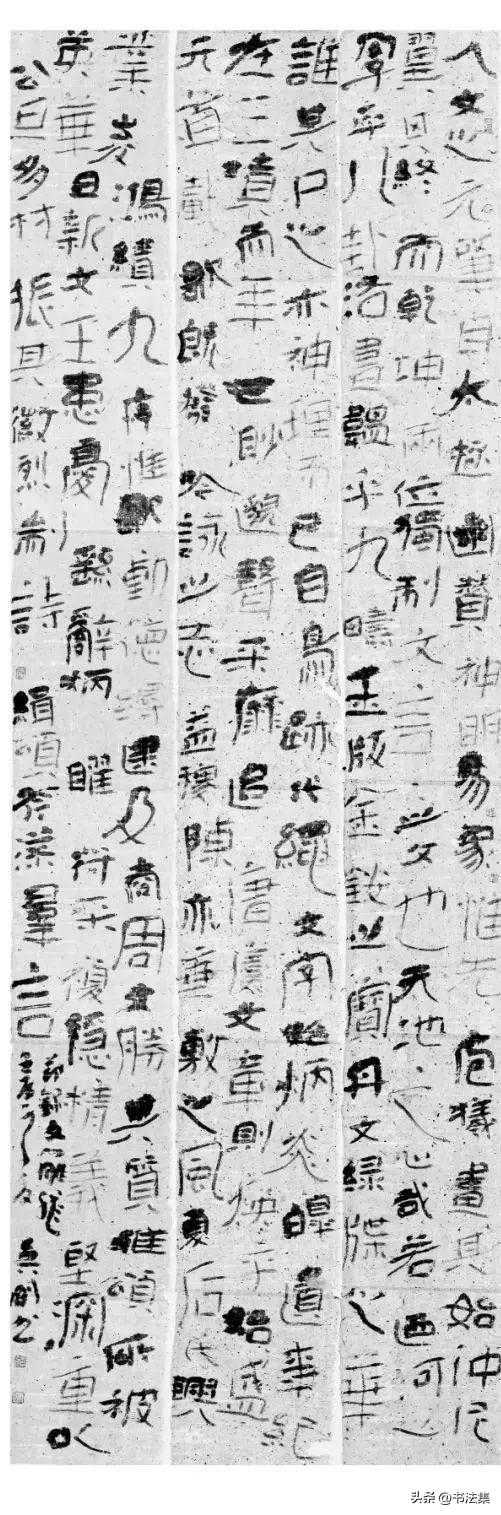 人文之元肇自太極幽贊神明易象惟先庖犧畫其始仲尼
翼其終而乾坤兩位獨制文言之文也天地之心哉若迺河
孕乎八卦洛書韞乎九疇玉版金鏤之實丹文綠牒之華
誰其尸之亦神理而已自鳥跡代繩文字始炳炎皞遺事紀
在三墳而年世眇邈聲采靡追唐虞文章則煥乎始盛
元首載歌既發吟詠之志益稷陳亦垂敷之風夏后氏興
業峻鴻績九序惟歌勳德縟逮及商周文勝其質雅頌所被
英華日新文王患憂繇辭炳曜符采複隱精義堅深重以
公旦多材振其徽烈制詩緝頌斧藻羣言
節錄文心雕龍
头条 @书法集